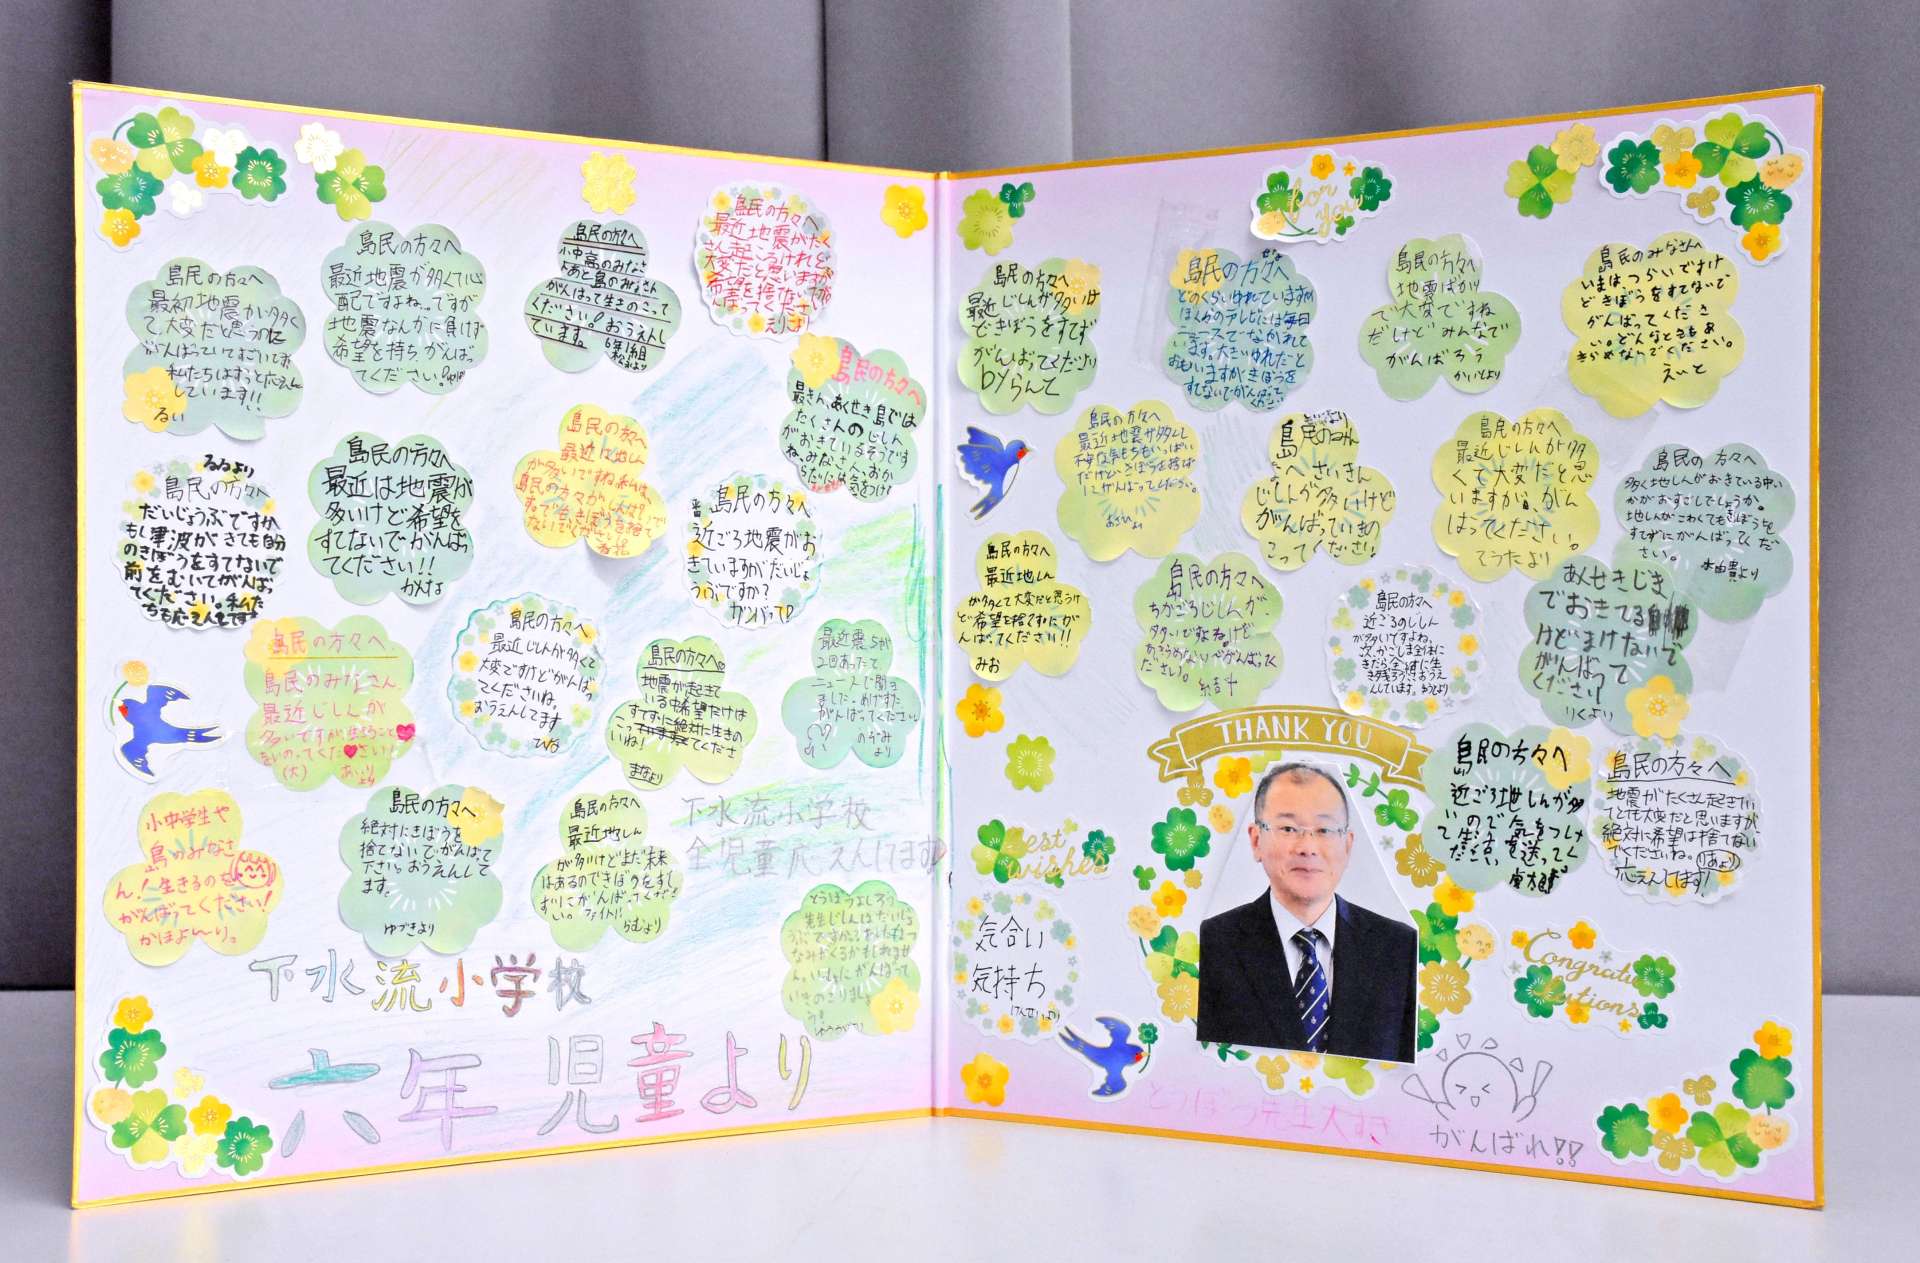 島民の方々へ
最初地震が多く
て、大変だと思うのに
がんばっていてすごいです
私たちはずっと応えん
しています!!
るい
島民の方々へ
最近地震が多くて心
配ですよね…ですが
地震なんかに負けず
希望を持ち、がんばっ
てください!
島民の方々へ
小中高のみなさ
んあと島のみなさん
がんばって生きのこって
ください!おうえんし
ています。
6年1組
島民の方々へ
最近地震がたく
さん起こるけれど
大変だと思いますが
希望を捨てないで
がんばってください
えりより
島民の方々へ
最きん、あくせき島では
たくさんのじしん
がおきているそうです
ね、みなさん、おか
らだには気をつけ
るるより
島民の方々へ
だいじょうぶですか
もし津波がきても自分
のきぼうをすてないで
前をむいてがんばっ
てください。私た
ちも応えんしてます
島民の方々へ
最近は地震が
多いけど希望を
すてないでがんばっ
てください!!
かんな
島民の方々へ
最近地しん
が多いですね
島民の方々へ
近ごろ地震がお
きていますがだいじょ
うぶですか?
ガンバって!
島民の方々へ
島民のみなさん
最近じしんが
多いですが、生きること
をいのってください!
あいりより
島民の方々へ
最近じしんが多くて
大変ですけどがんばっ
てくださいね。
おうえんしてます
ひな
島民の方々へ
地震が起きて
いる中希望だけは
すてずに絶対に生きの
こってくださ
いね!
まなより
最近震5が
2回あったて
ニュースで聞き
ました。めげずに
がんばってください
のぞみ
より
小中学生や
島のみなさ
ん!生きるのを
がんばってください!
かほよ~り。
島民の方々へ
絶対にきぼうを
捨てないでがんばって
下さい。おうえんしてい
ます。
ゆづきより
島民の方々へ
最近地しん
が多いけどまだ未来
はあるのできぼうをすて
ずにがんばってくださ
い。ファイト!!
らむより
下水流小学校
全児童応えんしてます
とうぼうよしろう
先生じしんはだいじょ
うぶですか?
下水流小学校
六年児童より
for you
島民の方々へ
最近じしんが多いけ
どきぼうをすてず
がんばってください
byらんて
島民の方々へ
どのくらいゆれていますか
ぼくらのテレビには毎日
ニュースでながれて
います。大きゆれだと
おもいますがきぼうを
すてないでがんばって
ください
島民の方々へ
地震ばかり
で大変ですね
だけどみんなで
がんばろう
かいとより
島民のみなさんへ
いまは、つらいですけ
どきぼうをすてないで
がんばってくださ
い。どんなときもあ
きらめないでください。
えいと
島民の方々へ
最近地震が多くし
不安な気もちもいっぱい
だけどきぼうを捨てず
にがんばってください。
あさひより
島民のみんな
へさいきん
じしんが多いけど
がんばっていきの
こってください!
島民の方々へ
最近じしんが多
くて大変だと思
いますが、がん
ばってください。
てうたより
島民の方々へ
多く地しんがおきている中い
かがおすごしでしょうか。
地しんがこわくてもきぼうを
すてずにがんばってくだ
さい。
島民の方々へ
最近地しん
が多くて大変だと思うけ
ど希望を捨てずにが
んばってください!!
みお
島民の方々へ
ちかごろじしんが、
多いですよねけど
あきらめないでがんばって
ださい。
島民の方々へ
近ごろのじしん
が多いですよね。
あくせきじま
でおきてる
けどまけないで
がんばって
ください
りくより
THANK YOU
島民の方々へ
近ごろ地しんが多
いので気をつけ
て生活を送ってく
ださい
島民の方々へ
地震がたくさん起きてい
てとても大変だと思いますが、
絶対に希望は捨てない
でくださいね。
応えんしてます!
Best wishes
気合い
気持ち
けんせいより
Congratulations
とうぼう先生大すき
がんばれ!!